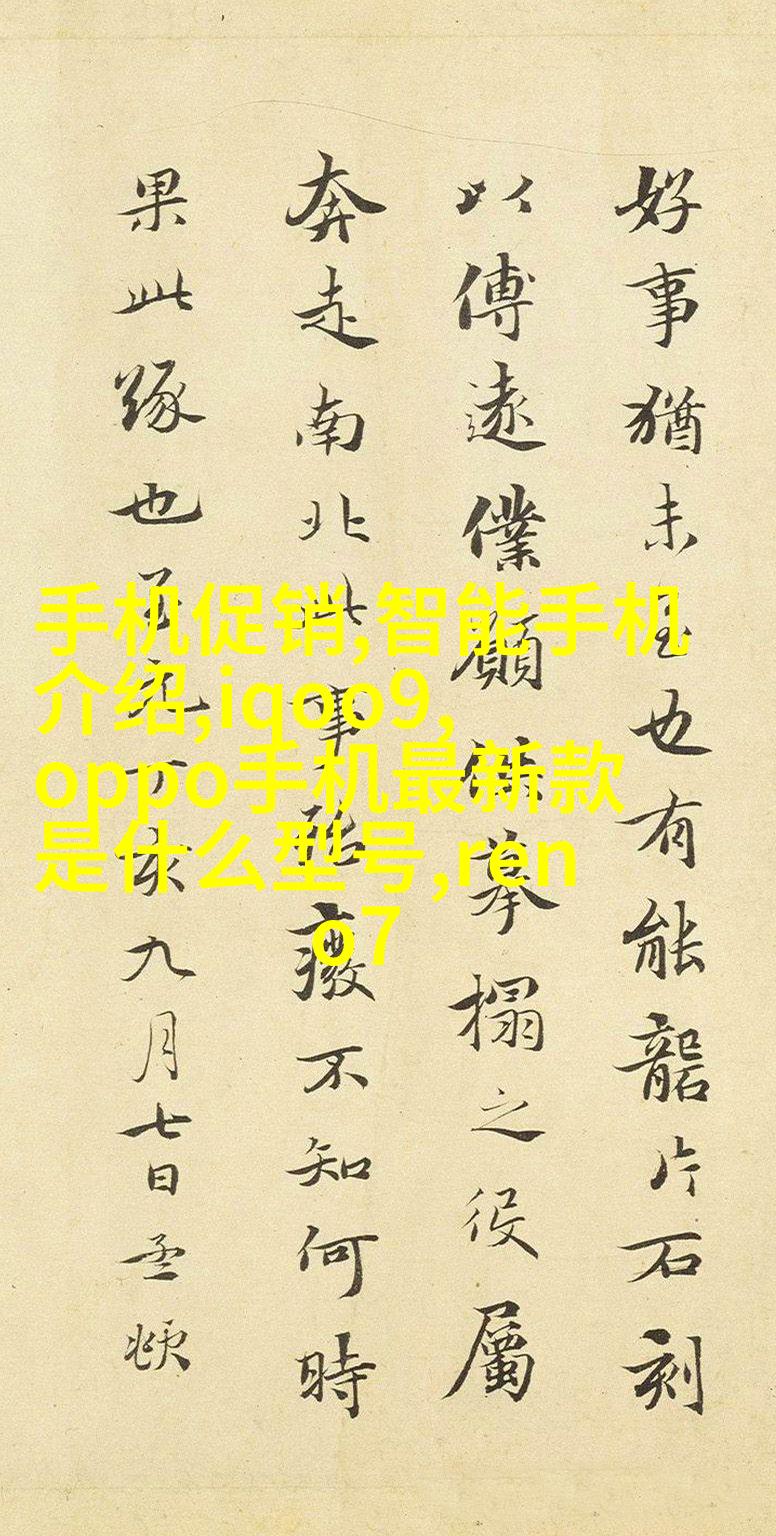 好事猶未足也有能礱片石刻
以傅遠僕願任摹搨之役屬
奔走南北此事殆癈不知何時
果此緣也至元丁亥九月七日孟頫
手机促销,智能手机
介绍,iqoo9,
oppo手机最新款
是什么型号,ren
o7